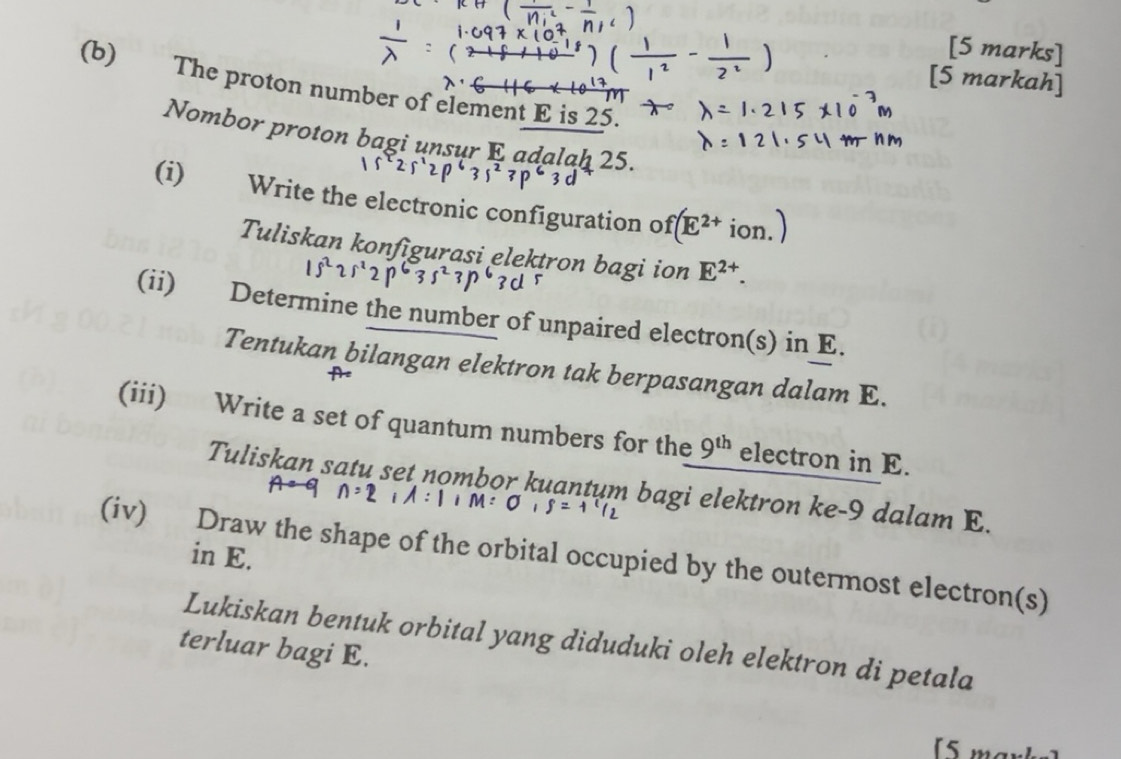 1/λ = (1.097 × 10⁷) (1/1² - 1/2²)
[5 marks]
[5 markah]
(b) The proton number of element E is 25.
λ = 1.215 × 10⁻⁷ m
Nombor proton bagi unsur E adalah 25.
λ = 121.54 nm
1s² 2s² 2p⁶ 3s² 3p⁶ 3d⁷
(i) Write the electronic configuration of (E²⁺ ion.)
Tuliskan konfigurasi elektron bagi ion E²⁺.
1s² 2s² 2p⁶ 3s² 3p⁶ 3d⁵
(ii) Determine the number of unpaired electron(s) in E.
Tentukan bilangan elektron tak berpasangan dalam E.
(iii) Write a set of quantum numbers for the 9th electron in E.
Tuliskan satu set nombor kuantum bagi elektron ke-9 dalam E.
n=2, l=1, m=0, s=+1/2
(iv) Draw the shape of the orbital occupied by the outermost electron(s)
in E.
Lukiskan bentuk orbital yang diduduki oleh elektron di petala
terluar bagi E.
[5